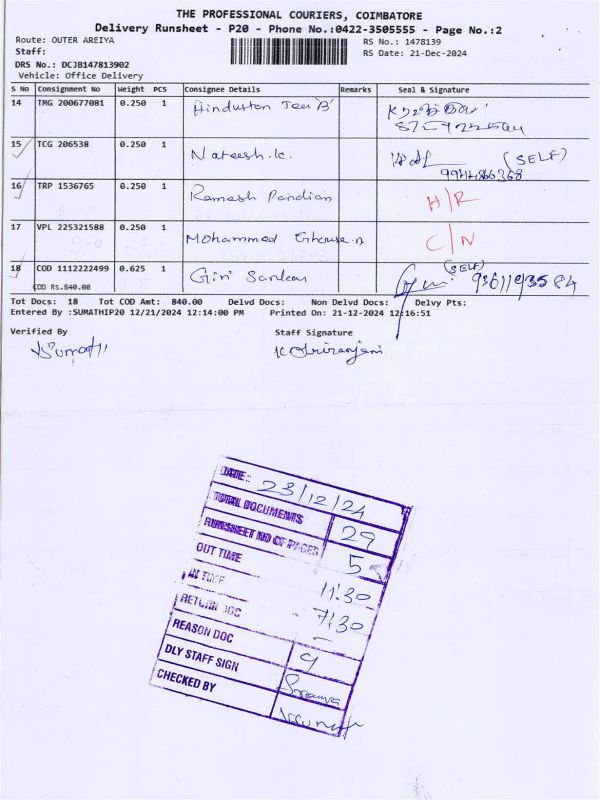 THE PROFESSIONAL COURIERS, COIMBATORE
Delivery Runsheet - P20 - Phone No.:0422-3505555 - Page No.:2
Route: OUTER AREIYA
RS No.: 1478139
Staff:
RS Date: 21-Dec-2024
DRS No.: DCJB147813902
Vehicle: Office Delivery
S No Consignment No Weight PCS Consignee Details Remarks Seal & Signature
14 TMG 200677081 0.250 1 Hindustan Tea 'B'
15 TCG 206538 0.250 1 Nateesh.K. (SELF)
9944866368
16 TRP 1536765 0.250 1 Ramesh Pandian H/R
17 VPL 225321588 0.250 1 Mohammed C/N
18 COD 1112222499 0.625 1 Giri Sankar (SELF)
COD Rs.840.00
Tot Docs: 18 Tot COD Amt: 840.00 Delvd Docs: Non Delvd Docs: Delvy Pts:
Entered By :SUMATHIP20 12/21/2024 12:14:00 PM Printed On: 21-12-2024 12:16:51
Verified By Staff Signature
DATE: 23/12/24
TOTAL DOCUMENTS 29
RUNSHEET NO OF PAGES 5
OUT TIME 11:30
IN TIME 7:30
RETURN DOC –
REASON DOC 9
DLY STAFF SIGN
CHECKED BY